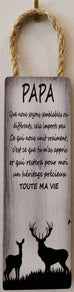 PAPA
Que nous soyons semblables ou
différents, cela importe peu
Ce qui nous unit vraiment,
c'est ce que tu m'as appris
et qui restera pour moi
un héritage précieux
TOUTE MA VIE